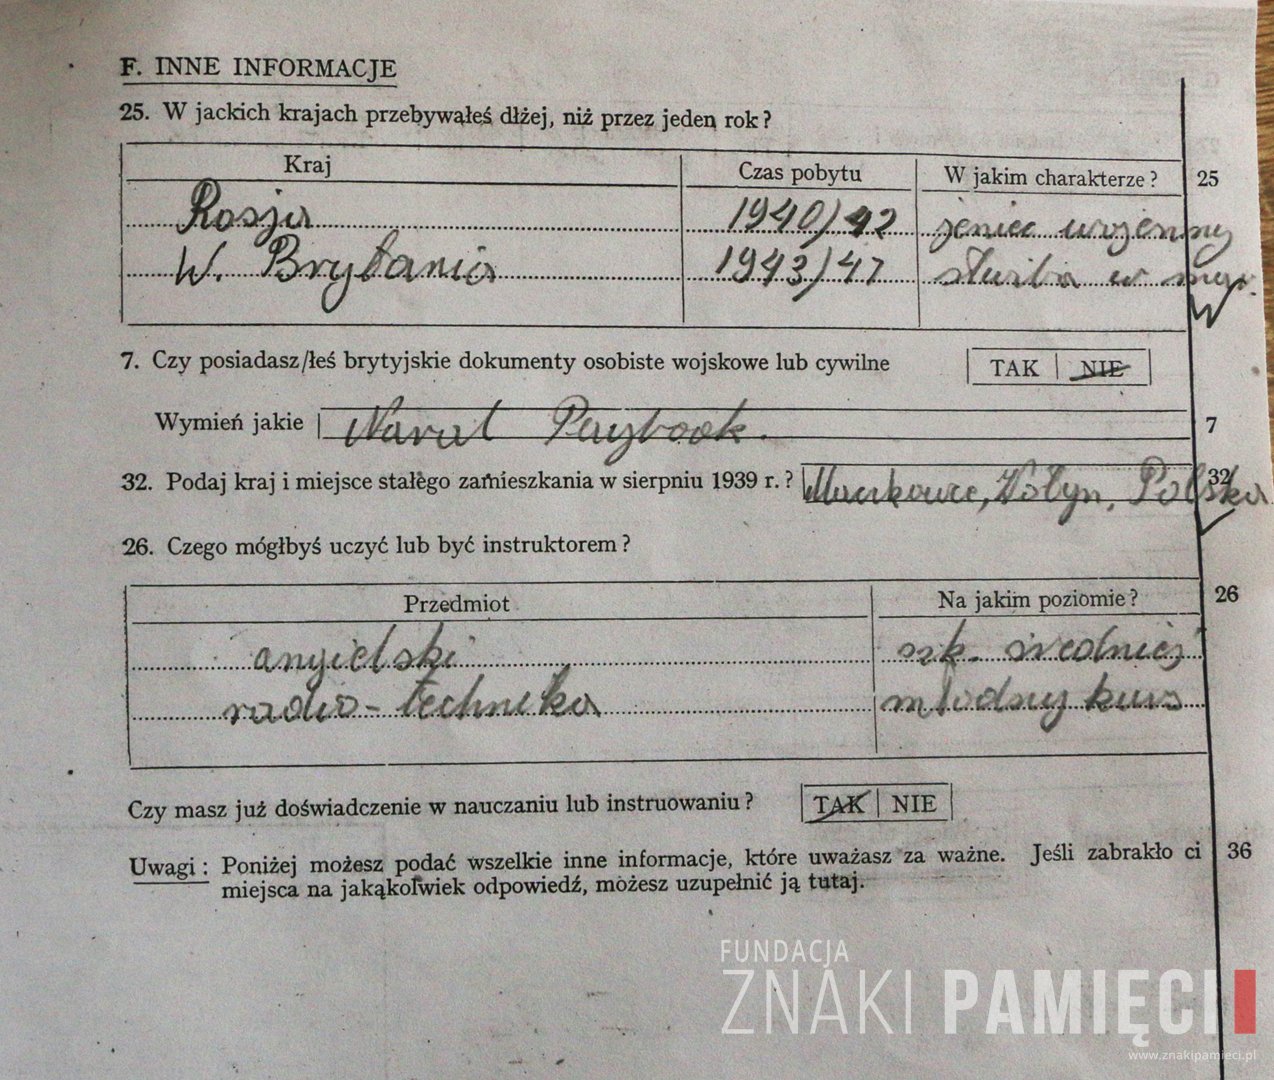 F. INNE INFORMACJE
25. W jackich krajach przebywąłeś dłżej, niż przez jeden rok?
Kraj Czas pobytu W jakim charakterze? 25
Rosja 1940/42 jeniec wojenny
W. Brytania 1943/47 służba w mar.
7. Czy posiadasz/łeś brytyjskie dokumenty osobiste wojskowe lub cywilne TAK NIE
Wymień jakie Naval Paybook. 7
32. Podaj kraj i miejsce stałego zamieszkania w sierpniu 1939 r.? Maćkowce, Wołyń, Polska 32
26. Czego mógłbyś uczyć lub być instruktorem?
Przedmiot Na jakim poziomie? 26
angielski szk. średniej
radio-technika młodszy kurs
Czy masz już doświadczenie w nauczaniu lub instruowaniu? TAK NIE
Uwagi: Poniżej możesz podać wszelkie inne informacje, które uważasz za ważne. Jeśli zabrakło ci 36
miejsca na jakąkolwiek odpowiedź, możesz uzupełnić ją tutaj.
FUNDACJA
ZNAKI PAMIĘCI
www.znakipamieci.pl